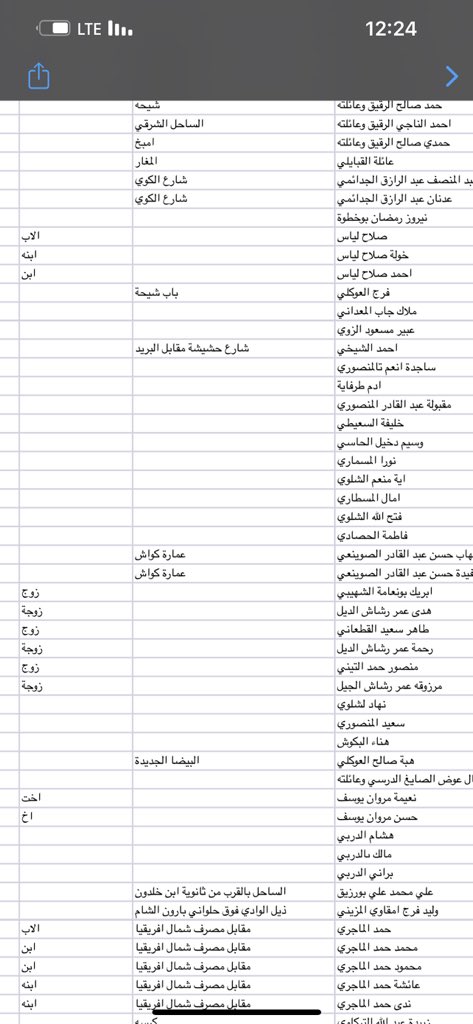 LTE 12:24
حمد صالح الرقيق وعائلته شيحه
احمد الناجي الرقيق وعائلته الساحل الشرقي
حمدي صالح الرقيق وعائلته امبخ
عائلة القبايلي المغار
المنصف عبد الرازق الجدائمي شارع الكوي
عدنان عبد الرازق الجدائمي شارع الكوي
نيروز رمضان بوخطوة
صلاح لياس الاب
خولة صلاح لياس ابنه
احمد صلاح لياس ابن
فرج العوكلي باب شيحة
ملاك جاب المعداني
عبير مسعود الزوي
احمد الشيخي شارع حشيشة مقابل البريد
ساجدة انعم تالمنصوري
ادم طرفاية
مقبولة عبد القادر المنصوري
خليفة السعيطي
وسيم دخيل الحاسي
نورا المسماري
اية منعم الشلوي
امال المسطاري
فتح الله الشلوي
فاطمة الحصادي
حسن عبد القادر الصوينعي عمارة كواش
حسن عبد القادر الصوينعي عمارة كواش
ابريك بونعامة الشهيبي زوج
هدى عمر رشاش الديل زوجة
طاهر سعيد القطعاني زوج
رحمة عمر رشاش الديل زوجة
منصور حمد التيني زوج
مرزوقه عمر رشاش الجيل زوجة
نهاد لشلوي
سعيد المنصوري
هناء البكوش
هبة صالح العوكلي البيضا الجديدة
عوض الصايغ الدرسي وعائلته
نعيمة مروان يوسف اخت
حسن مروان يوسف اخ
هشام الدربي
مالك بالدربي
براني الدربي
علي محمد علي بورزيق الساحل بالقرب من ثانوية ابن خلدون
وليد فرج امقاوي المزيني ذيل الوادي فوق حلواني بارون الشام
حمد الماجري مقابل مصرف شمال افريقيا الاب
محمد حمد الماجري مقابل مصرف شمال افريقيا ابن
محمود حمد الماجري مقابل مصرف شمال افريقيا ابن
عائشة حمد الماجري مقابل مصرف شمال افريقيا ابنه
ندى حمد الماجري مقابل مصرف شمال افريقيا ابنه